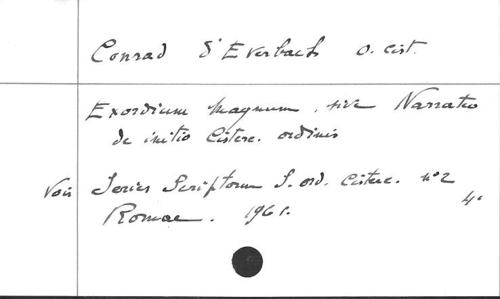 Conrad d'Everbach O. cist.
Exordium Magnum, sive Narratio
de initio Cisterc. ordinis
Vois Series Scriptorum S. ord. Cisterc. n° 2
4°
Romae. 1961.